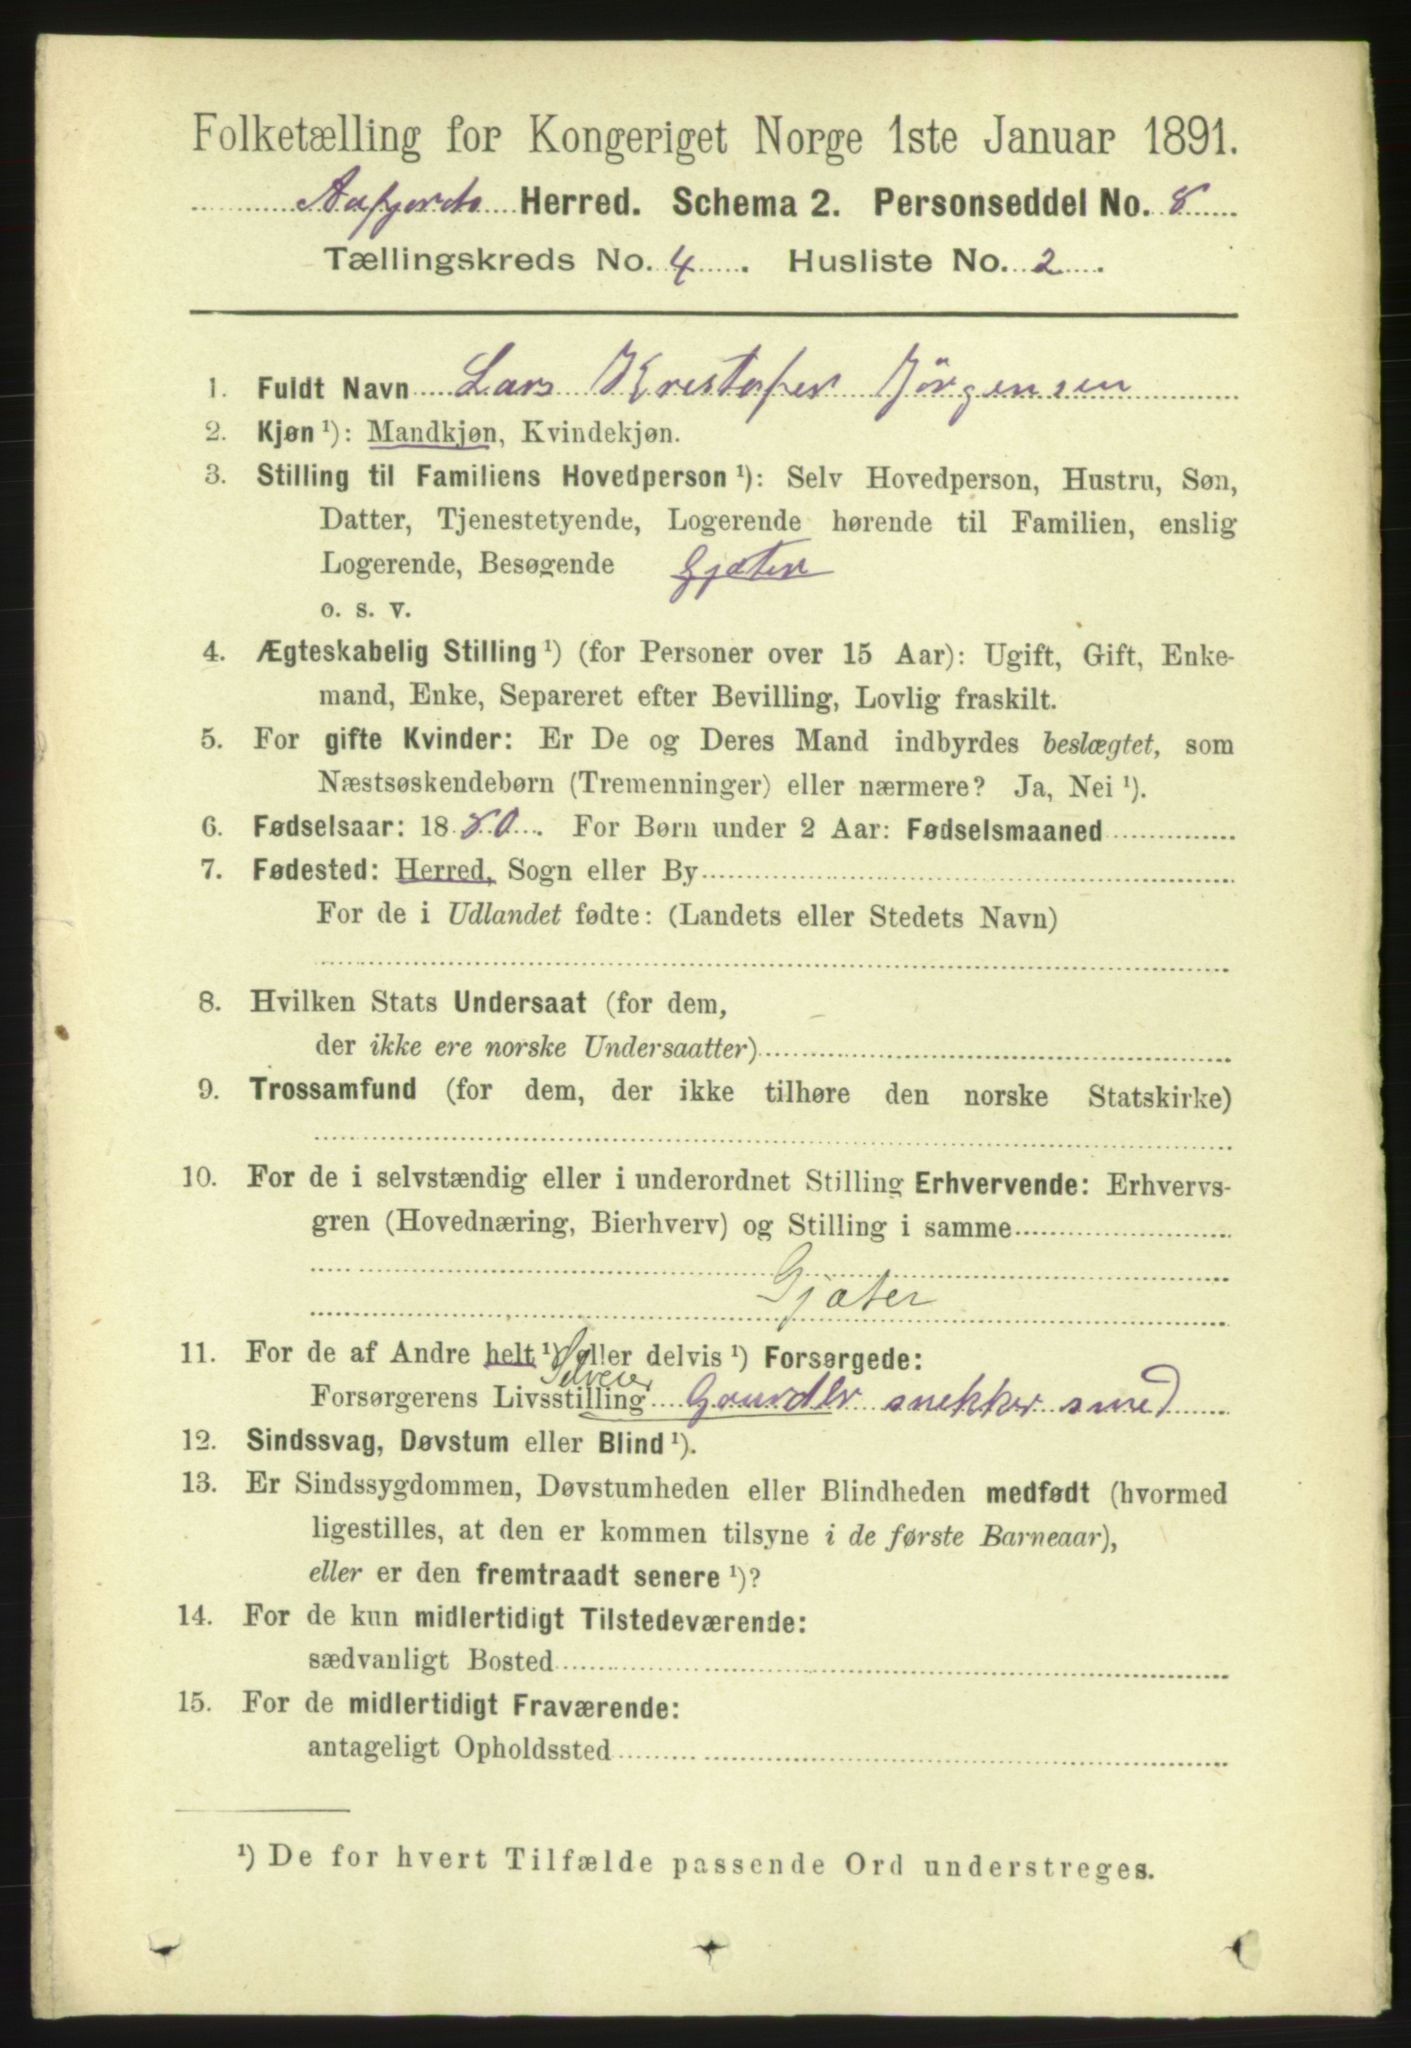 Folketælling for Kongeriget Norge 1ste Januar 1891.
Aafjords Herred. Schema 2. Personseddel No. 8
Tællingskreds No. 4. Husliste No. 2.
1. Fuldt Navn Lars Kristofer Jörgensen
2. Kjøn ¹): Mandkjøn, Kvindekjøn.
3. Stilling til Familiens Hovedperson ¹): Selv Hovedperson, Hustru, Søn,
Datter, Tjenestetyende, Logerende hørende til Familien, enslig
Logerende, Besøgende Gjæter
o. s. v.
4. Ægteskabelig Stilling ¹) (for Personer over 15 Aar): Ugift, Gift, Enke-
mand, Enke, Separeret efter Bevilling, Lovlig fraskilt.
5. For gifte Kvinder: Er De og Deres Mand indbyrdes beslægtet, som
Næstsøskendebørn (Tremenninger) eller nærmere? Ja, Nei ¹).
6. Fødselsaar: 1880. For Børn under 2 Aar: Fødselsmaaned
7. Fødested: Herred, Sogn eller By
For de i Udlandet fødte: (Landets eller Stedets Navn)
8. Hvilken Stats Undersaat (for dem,
der ikke ere norske Undersaatter)
9. Trossamfund (for dem, der ikke tilhøre den norske Statskirke)
10. For de i selvstændig eller i underordnet Stilling Erhvervende: Erhvervs-
gren (Hovednæring, Bierhverv) og Stilling i samme
Gjæter
11. For de af Andre helt ¹) eller delvis ¹) Forsørgede:
Selveier
Forsørgerens Livsstilling Gaardbr snekker smed
12. Sindssvag, Døvstum eller Blind ¹).
13. Er Sindssygdommen, Døvstumheden eller Blindheden medfødt (hvormed
ligestilles, at den er kommen tilsyne i de første Barneaar),
eller er den fremtraadt senere ¹)?
14. For de kun midlertidigt Tilstedeværende:
sædvanligt Bosted
15. For de midlertidigt Fraværende:
antageligt Opholdssted
¹) De for hvert Tilfælde passende Ord understreges.